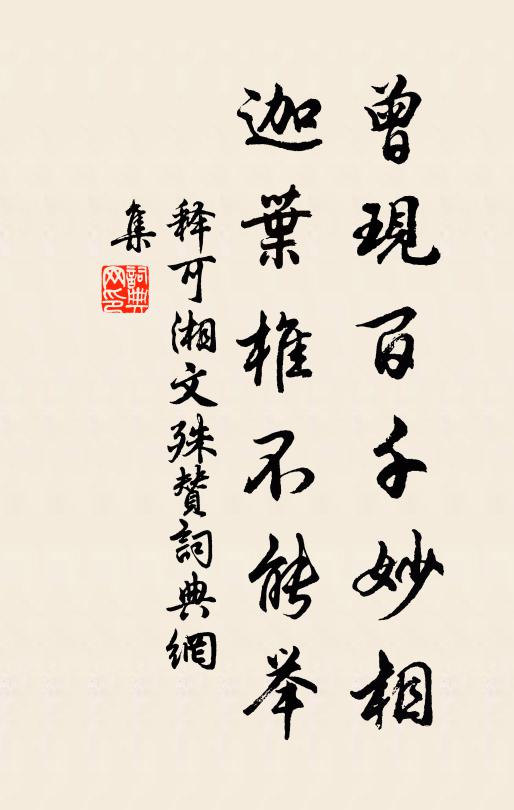 曾現百千妙相
迦葉椎不能举
释可湘文殊赞詞典網
集
詞典
网印